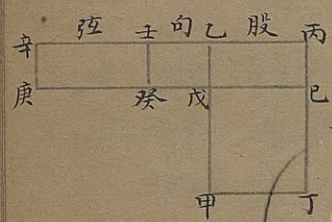 辛 弦 壬 句 乙 股 丙
庚 癸 戊 巳
甲 丁